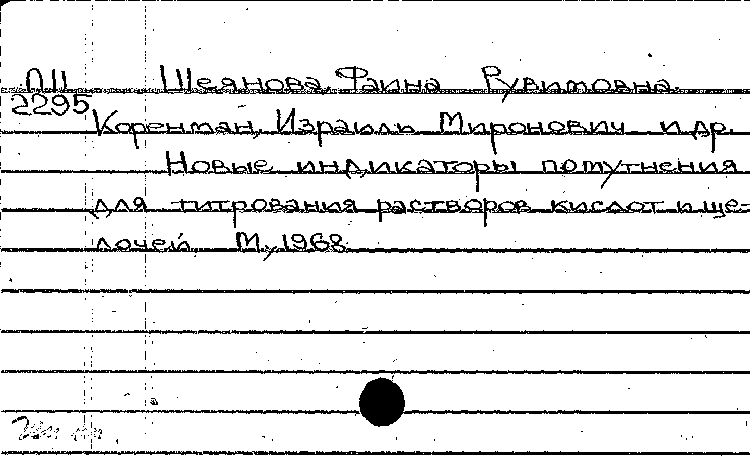 ПП Шеянова, Фаина Рувимовна.
2295 Коренман, Израиль Миронович и др.
Новые индикаторы помутнения
для титрования растворов кислот и ще-
лочей. М., 1968